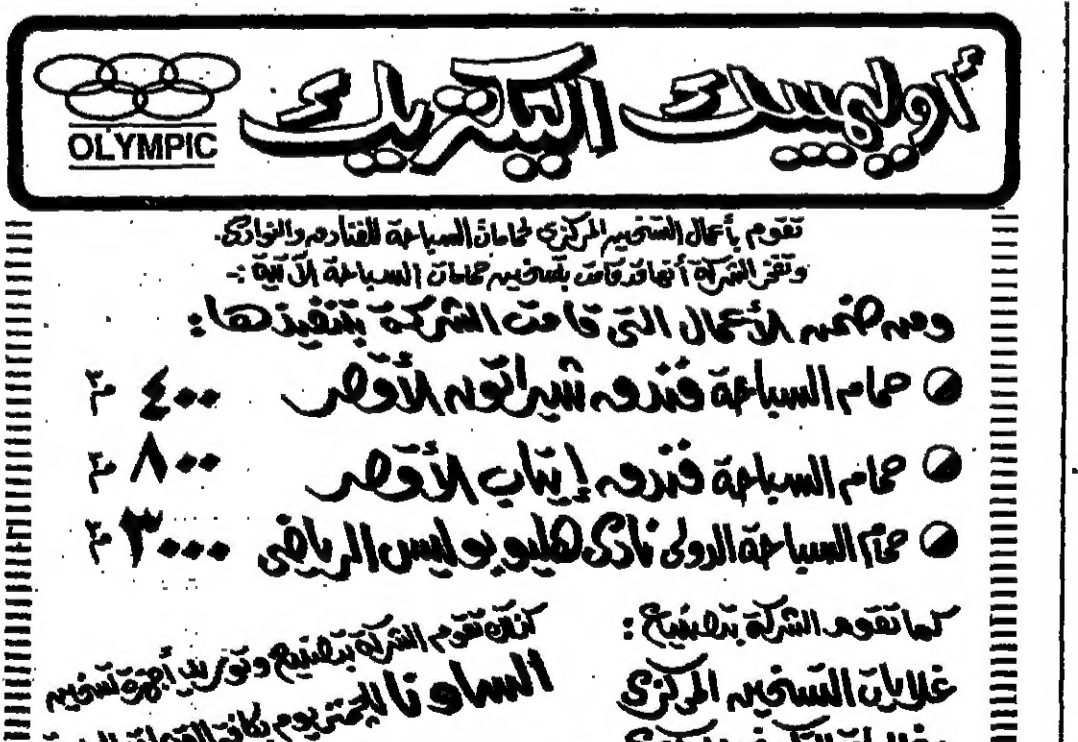 أوليمبيك اليكتريك
OLYMPIC
تقوم بأعمال التسخين المركزى لحمامات السباحة للفنادق والنوادى.
وتفخر الشركة أنها قد قامت بتسخين حمامات السباحة الآتية :-
ومن ضمن الأعمال التى قامت الشركة بتنفيذها :
حمام السباحة فندق شيراتون الأقصر ٤٠٠ م٣
حمام السباحة فندق إيتاب الأقصر ٨٠٠ م٣
حمام السباحة الدولى نادى هليوبوليس الرياضى ٣٠٠٠ م٣
كما تقوم الشركة بتصنيع :
غلايات التسخين المركزى
كذلك تقوم الشركة بتصنيع وتوريد أجهزة تسخين
الساونا